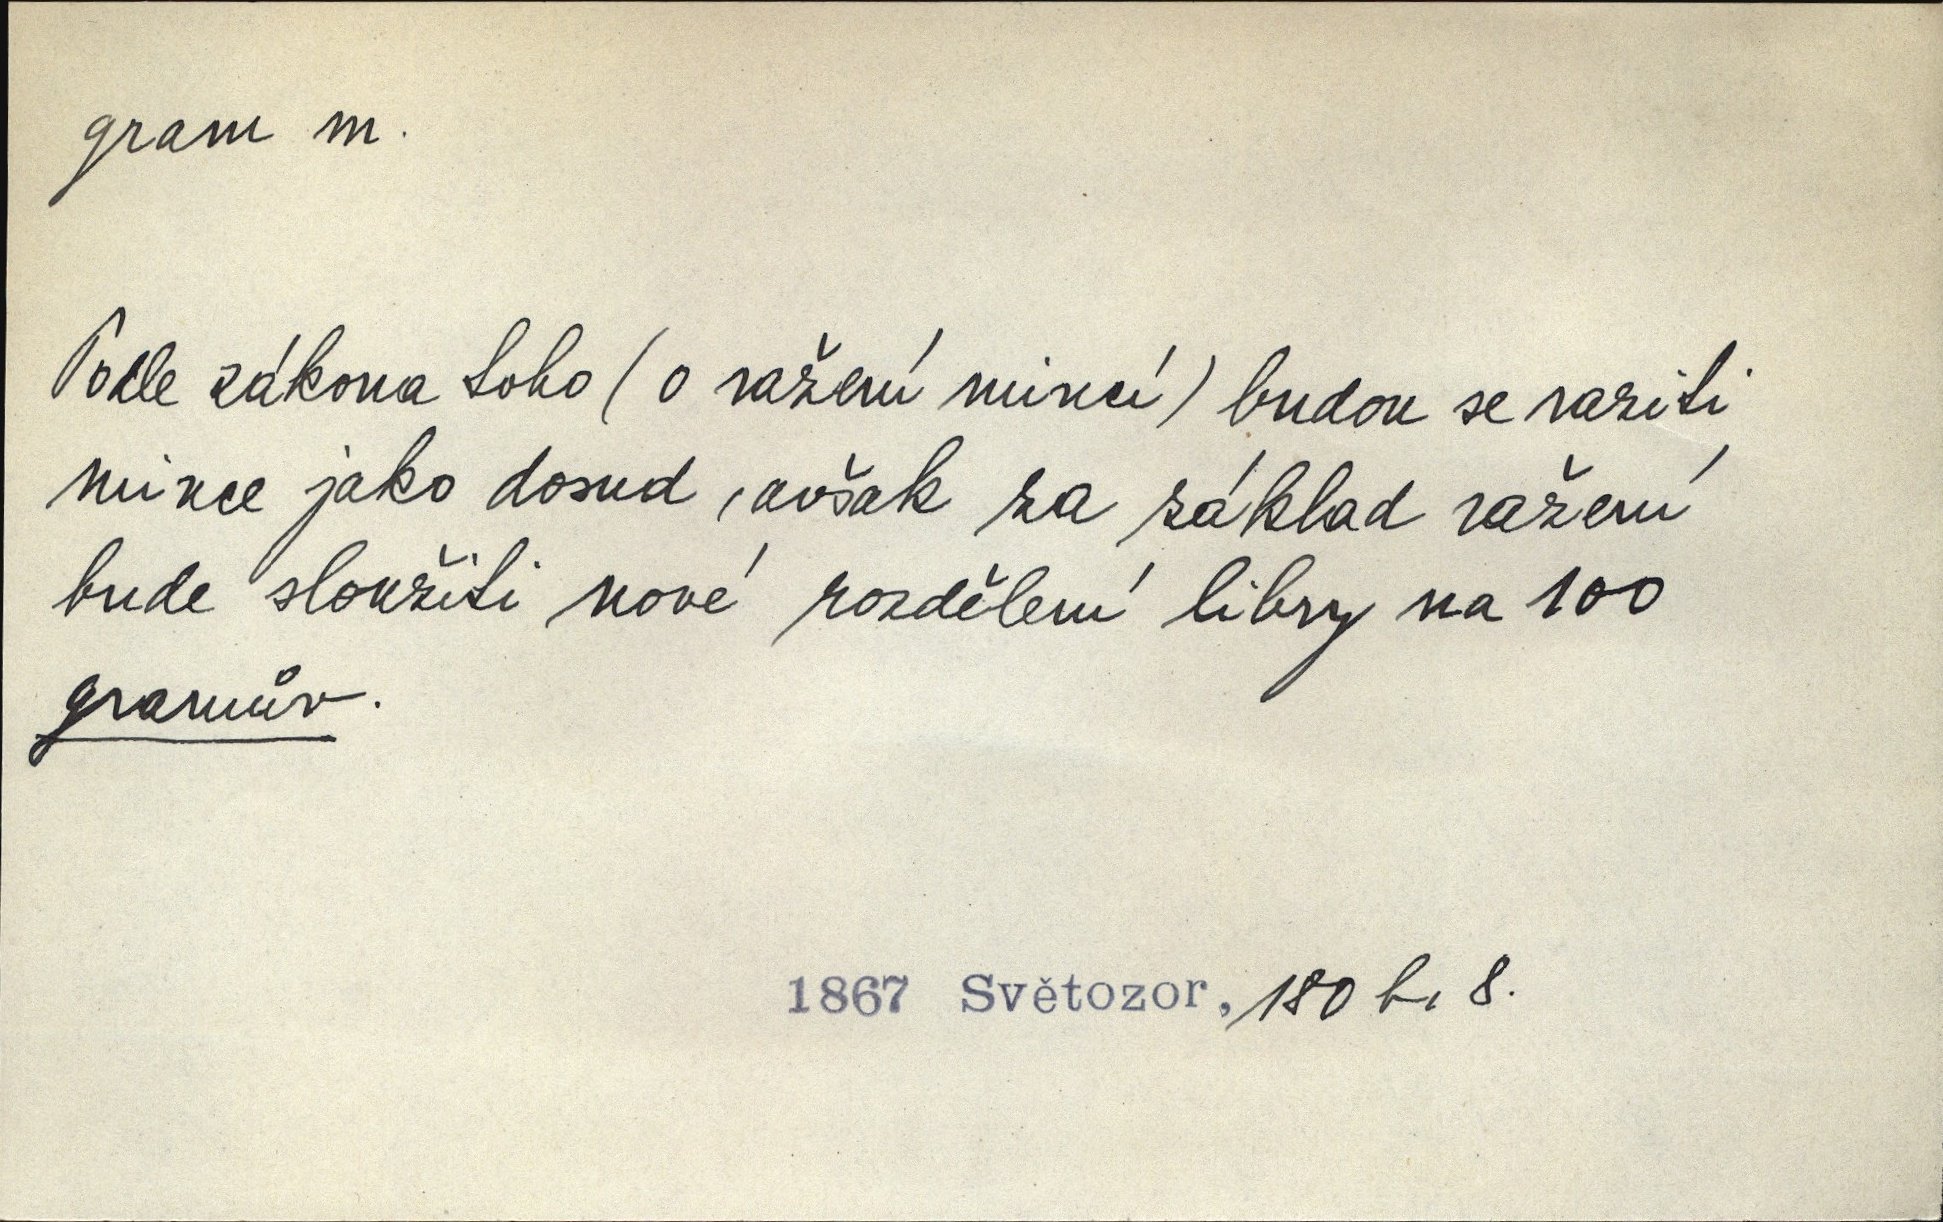 gram m.
Podle zákona toho (o ražení mincí) budou se raziti
mince jako dosud, avšak za základ ražení
bude sloužiti nové rozdělení libry na 100
gramův.
1867 Světozor, 180 b, 8.